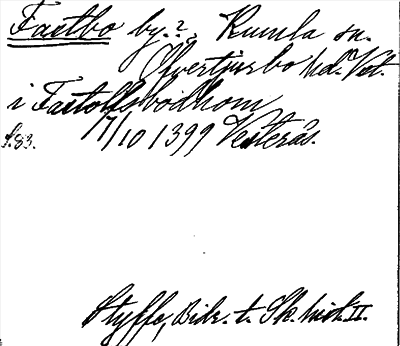 Fastbo by.?, Kumla sn.
Öfvertjurbo hd. Vst.
i Fastollsbodhom
s. 83. 17/10 1399 Vesterås.
Styffe, Bidr. t. Sk. hist. II.